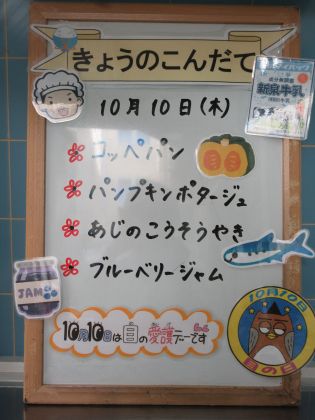 きょうのこんだて
10月10日(木)
コッペパン
パンプキンポタージュ
あじのこうそうやき
ブルーベリージャム
JAM
10月10日は目の愛護デーです
10月10日
目の日
新泉牛乳